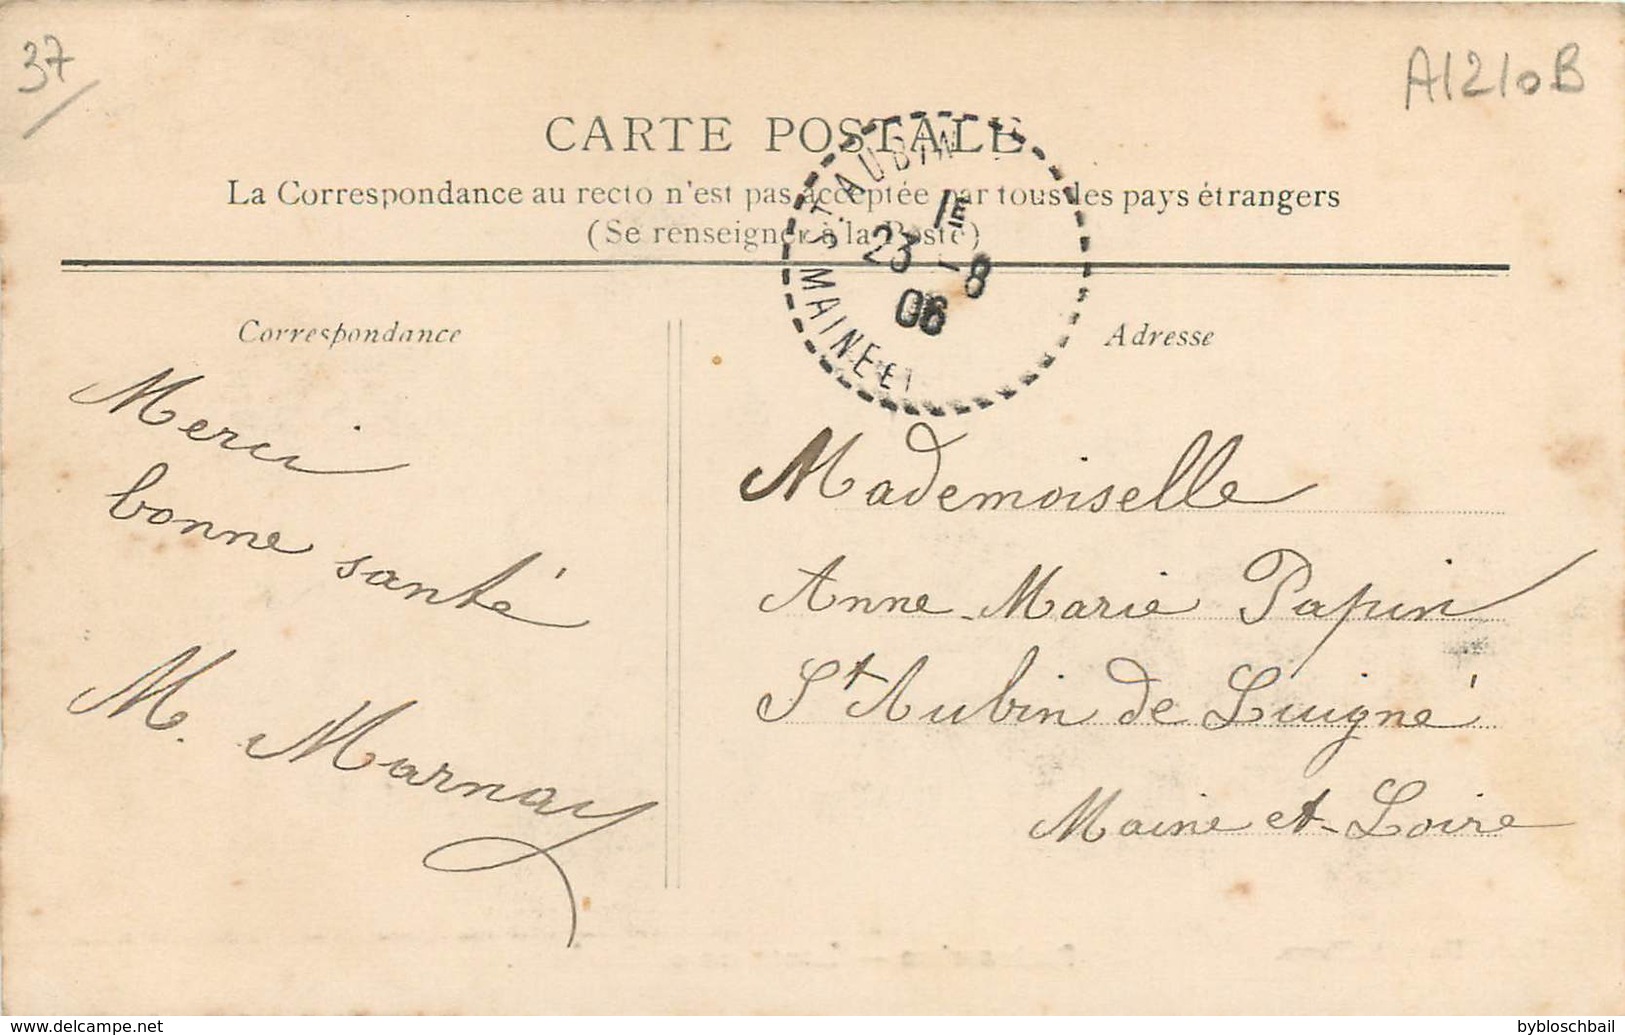 37
A1210B
CARTE POSTALE
La Correspondance au recto n'est pas acceptée par tous les pays étrangers
(Se renseigner à la Poste)
ST. AUBIN
1E
23 - 8
06
MAINE ET
Correspondance
Merci
bonne santé
M. Marnay
Adresse
Mademoiselle
Anne-Marie Papin
St Aubin de Luigné
Maine et-Loire
www.delcampe.net
bybloschbail